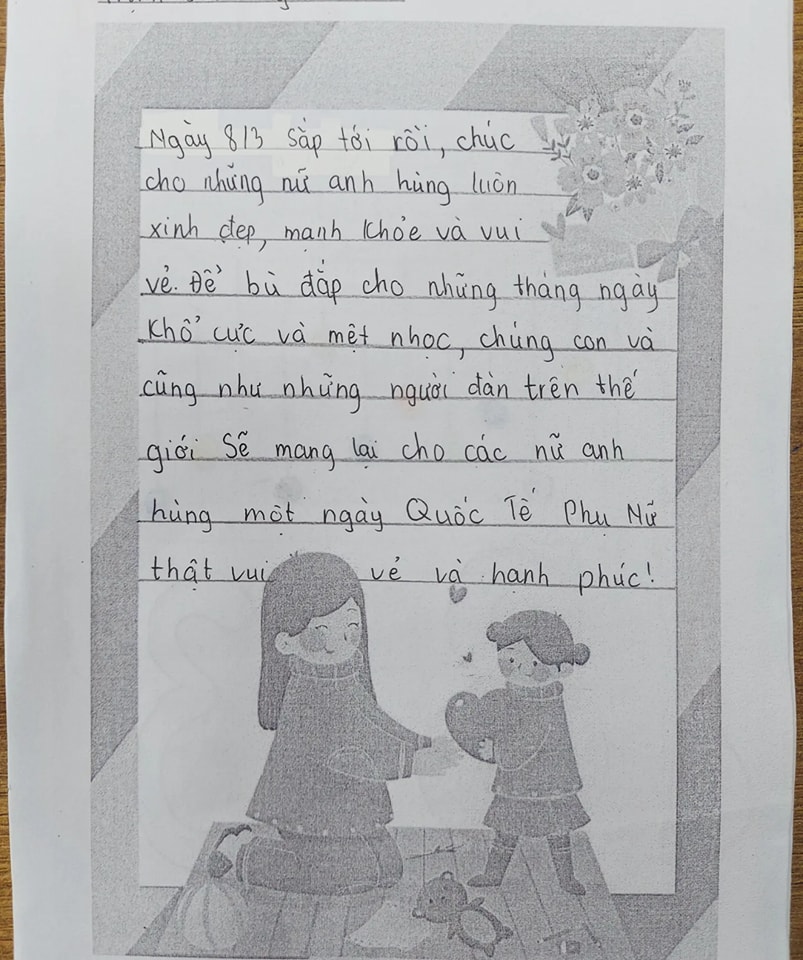 Ngày 8/3 Sắp tới rồi, chúc
cho những nữ anh hùng luôn
xinh đẹp, mạnh khỏe và vui
vẻ. Để bù đắp cho những tháng ngày
Khổ cực và mệt nhọc, chúng con và
cũng như những người đàn trên thế
giới Sẽ mang lại cho các nữ anh
hùng một ngày Quốc Tế Phụ Nữ
thật vui vẻ và hạnh phúc!